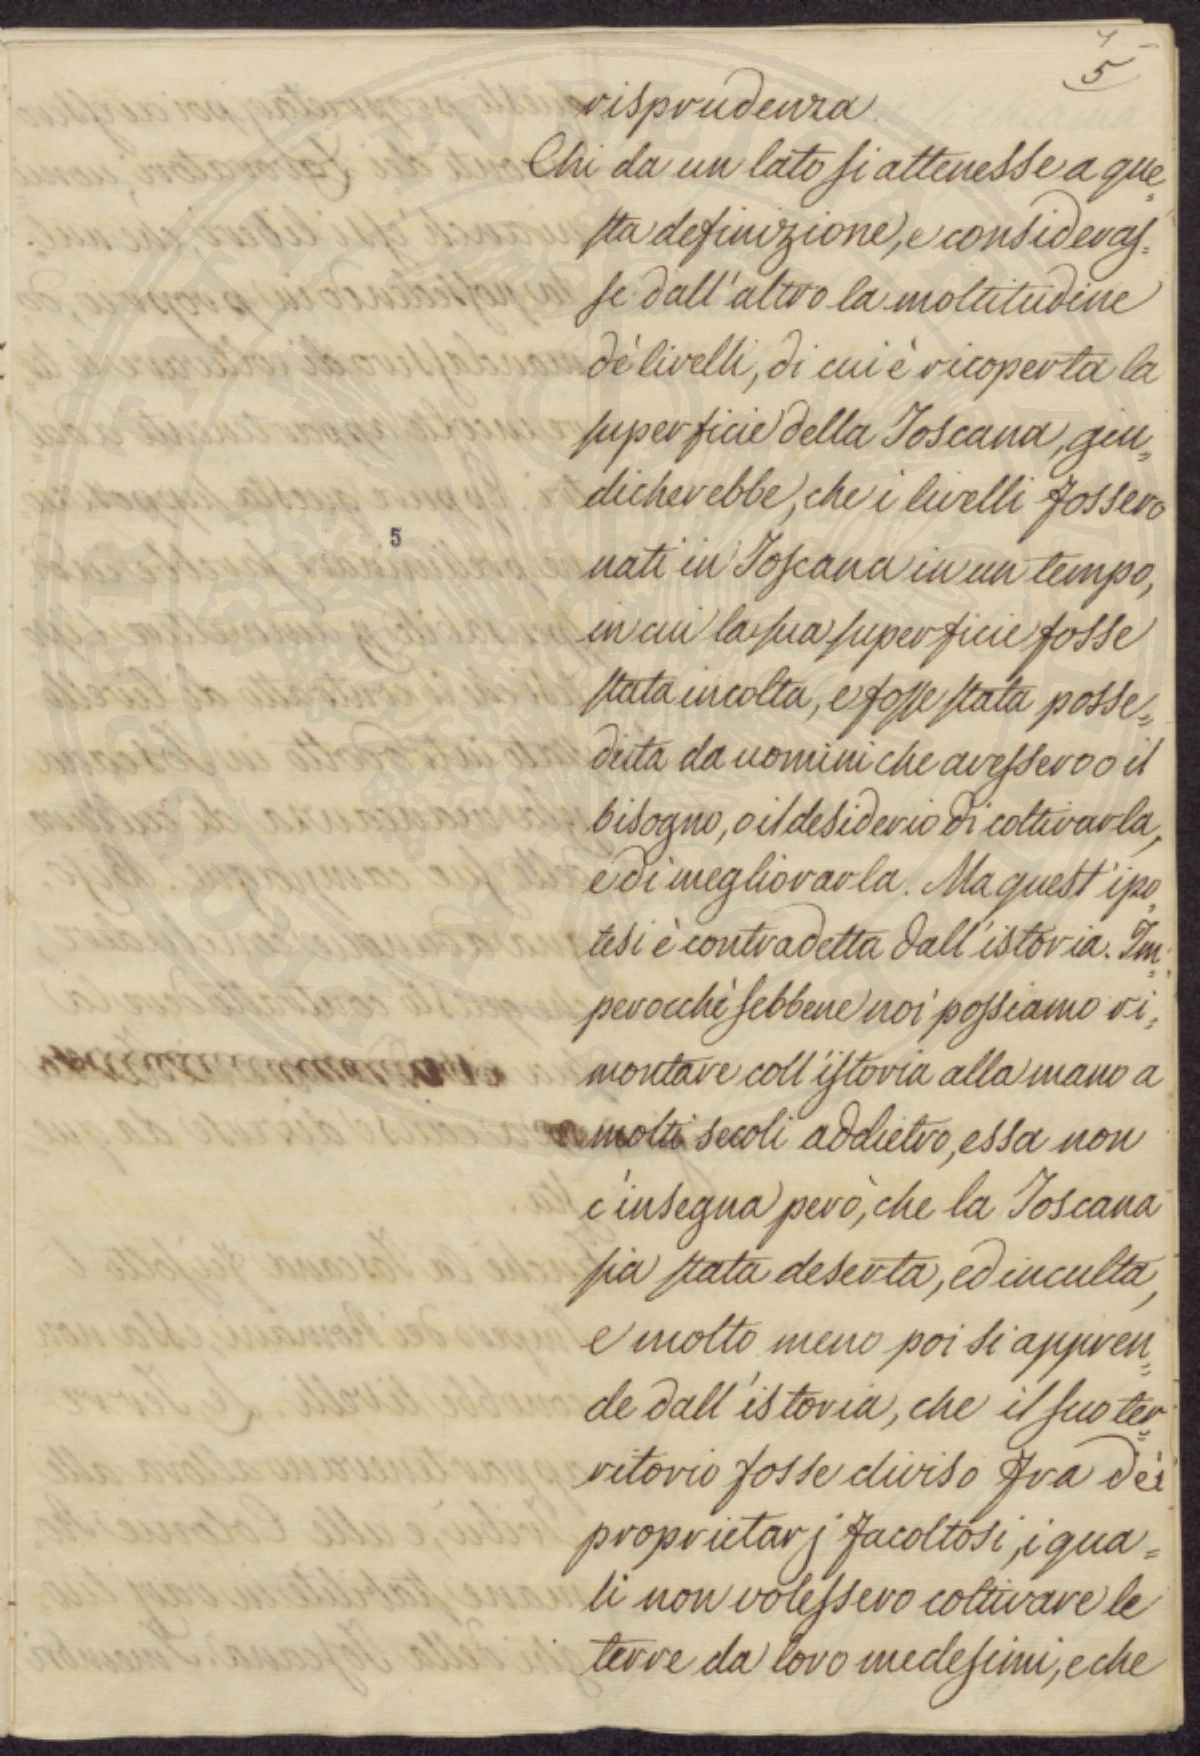 5
risprudenza.
Chi da un lato si attenesse a que„
sta definizione, e consideras„
se dall'altro la moltitudine
de' livelli, di cui è ricoperta la
superficie della Toscana, giu„
dicherebbe, che i livelli fossero
5
nati in Toscana in un tempo,
in cui la sua superficie fosse
stata incolta, e fosse stata posse„
duta da uomini che avessero o il
bisogno, o il desiderio di coltivarla,
e di megliorarla. Ma quest'ipo„
tesi è contradetta dall'istoria. Im„
perocchè sebbene noi possiamo ri„
montare coll'istoria alla mano a
molti secoli addietro, essa non
c'insegna però, che la Toscana
sia stata deserta, ed inculta,
e molto meno poi si appren„
de dall'istoria, che il suo ter„
ritorio fosse diviso fra dei
proprietarj facoltosi, i qua=
li non volessero coltivare le
terre da loro medesimi, e che